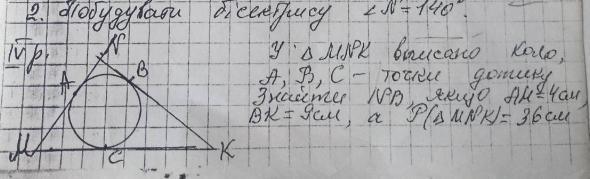 2. Побудувати бісектрису ∠N=140°.
IV р.
N
У △ MNK вписано коло,
A
B
A, B, C – точки дотику
Знайти NB, якщо AM=4см,
BK=9см, а P(△MNK)=36см
M
C
K